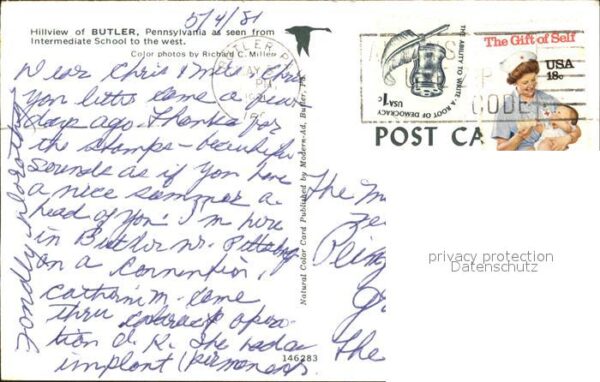 5/4/81
Hillview of BUTLER, Pennsylvania as seen from
Intermediate School to the west.
Color photos by Richard C. Miller
Dear Chris
You letter came a
day ago. Thanks for
the stamps - beautiful
sounds as if you have
a nice summer a-
head of you. I'm here
in Butler nr. Pittsburg
on a convention,
Catherine M. came
thru cataract opera-
tion O.K. She had a
implant (permanent)
Fondly, Dorothy
Natural Color Card Published by Modern-Ad, Butler, Pa.
146283
BUTLER
THE ABILITY TO WRITE · A ROOT OF DEMOCRACY
USA 1c
The Gift of Self
USA
18c
ZIP
CODE
POST CA
The
The
privacy protection
Datenschutz